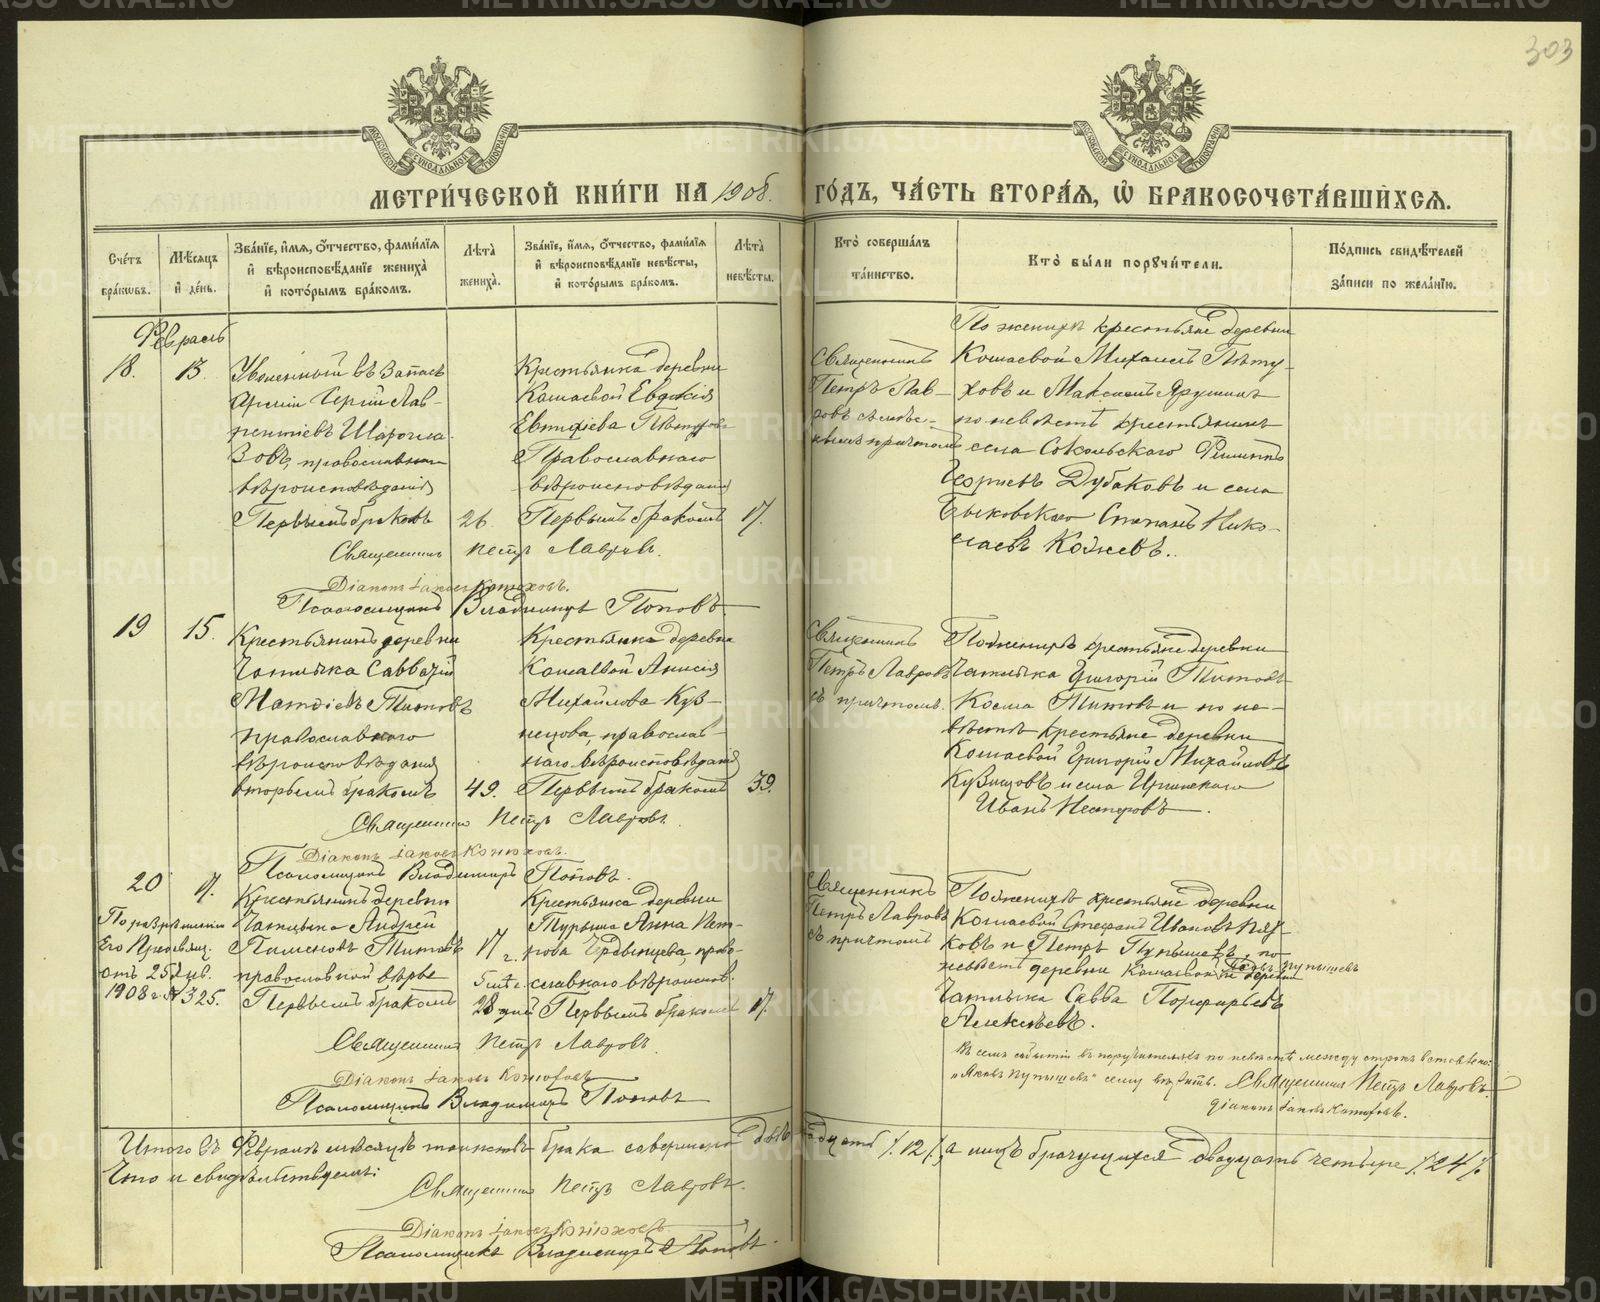 303
МОСКОВСКОЙ СѴНОДАЛЬНОЙ ТИПОГРАФІИ
МОСКОВСКОЙ СѴНОДАЛЬНОЙ ТИПОГРАФІИ
МЕТРИ́ЧЕСКОЙ КНИ́ГИ НА 1908. ГО́ДЪ, ЧА́СТЬ ВТОРА́Ѧ, Ѡ БРАКОСОЧЕТА́ВШИХСѦ.
Сче́тъ бра́кѡвъ.
Мѣ́сяцъ и де́нь.
Зва́нїе, и́мѧ, ѻ́тчество, фами́лїѧ и вѣроисповѣ́данїе жениха̀ и кото́рымъ бра́комъ.
Лѣ́та жениха̀.
Зва́нїе, и́мѧ, ѻ́тчество, фами́лїѧ и вѣроисповѣ́данїе невѣ́сты, и кото́рымъ бра́комъ.
Лѣ́та невѣ́сты.
Кто̀ соверша́лъ та́инство.
Кто̀ бы́ли порꙋчи́тели.
По́дпись свидѣ́телей за́писи по жела́нїю.
Февраль
18.
13.
Уволенный въ запасъ
Арміи Сергій Лав-
рентіевъ
православнаго
вѣроисповѣданія
Первымъ бракомъ
26.
Крестьянка деревни
Кошаевой Евдокія
Евтифіева Пѣтухова
Православнаго
вѣроисповѣданія
Первымъ бракомъ
17.
Священникъ
Петръ Лав-
ровъ
причтомъ
По женихѣ крестьяне деревни
Кошаевой Михаилъ Пѣту-
ховъ и Максимъ Ярушинъ
по невѣстѣ крестьянинъ
села Сокольскаго Филиппъ
Георгіевъ Дубаковъ и села
Быковскаго Степанъ Нико-
лаевъ
Священникъ Петръ Лавровъ.
Діаконъ Іаковъ Конюховъ.
Псаломщикъ Владиміръ Поповъ
19
15.
Крестьянинъ деревни
Чатлыка Савватій
Матѳіевъ Титовъ
православнаго
вѣроисповѣданія
вторымъ бракомъ
49.
Крестьянка деревни
Кошаевой Анисія
Михайлова Куз-
нецова, православ-
наго вѣроисповѣданія
Первымъ бракомъ
39.
Священникъ
Петръ Лавровъ
съ причтомъ.
По женихѣ крестьяне деревни
Чатлыка Григорій Титовъ
Косма Титовъ и по не-
вѣстѣ крестьяне деревни
Кошаевой Григорій Михайловъ
Кузнецовъ и села Иргинскаго
Иванъ Нестеровъ.
Священникъ Петръ Лавровъ.
Діаконъ Іаковъ Конюховъ.
Псаломщикъ Владиміръ Поповъ.
20
17.
По разрѣшенію
Его Преосвящ.
отъ 25 Янв.
1908 г. № 325.
Крестьянинъ деревни
Чатлыка Андрей
Пименовъ Титовъ
православной вѣры
Первымъ бракомъ
17 г.
5 мѣс.
28 дней
Крестьянка деревни
Турыша Анна Пет-
рова право-
славнаго вѣроисповѣ.
Первымъ бракомъ
17.
Священникъ
Петръ Лавровъ
съ причтомъ
По женихѣ крестьяне деревни
Кошаевой Стефанъ Ивановъ Пѣту-
ховъ и Петръ Пупышевъ, по
невѣстѣ деревни Кошаевой Яковъ Пупышевъ и деревни
Чатлыка Савва Порфирьевъ
Алексѣевъ.
Въ семъ событіи въ поручителяхъ по невѣстѣ между строкъ вставлено:
„Яковъ Пупышевъ" сему вѣрить. Священникъ Петръ Лавровъ.
Діаконъ Іаковъ Конюховъ.
Священникъ Петръ Лавровъ.
Діаконъ Іаковъ Конюховъ
Псаломщикъ Владиміръ Поповъ
Итого въ Февралѣ мѣсяцѣ таинствъ брака совершено двѣнадцать /12/, а лицъ брачущихся двадцать четыре /24/.
Что и свидѣтельствуемъ:
Священникъ Петръ Лавровъ.
Діаконъ Іаковъ Конюховъ
Псаломщикъ Владиміръ Поповъ.
METRIKI.GASO-URAL.RU